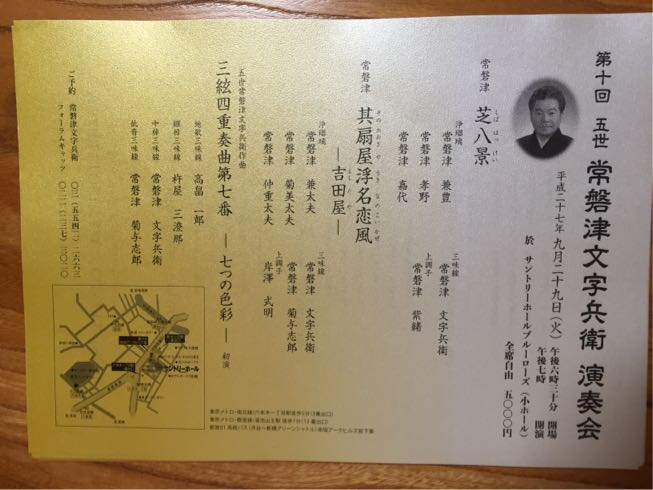 第十回 五世 常磐津文字兵衛 演奏会
平成二十七年 九月二十九日（火）
午後六時三十分 開場
午後七時 開演
於 サントリーホールブルーローズ（小ホール）
全席自由 五〇〇〇円
常磐津 芝八景
しば はっけい
浄瑠璃 常磐津 兼豊
常磐津 孝野
常磐津 嘉代
三味線 常磐津 文字兵衛
上調子 常磐津 紫緒
常磐津 其扇屋浮名恋風
―吉田屋―
浄瑠璃 常磐津 兼太夫
常磐津 菊美太夫
常磐津 仲重太夫
三味線 常磐津 文字兵衛
常磐津 菊与志郎
上調子 岸澤 式明
五世常磐津文字兵衛作曲
三絃四重奏曲第七番 ― 七つの色彩 ― 初演
地歌三味線 高畠 一郎
細棹三味線 杵屋 三澄那
中棹三味線 常磐津 文字兵衛
低音三味線 常磐津 菊与志郎
ご予約 常磐津文字兵衛 〇三（五五四一）二六六三
サントリーホール